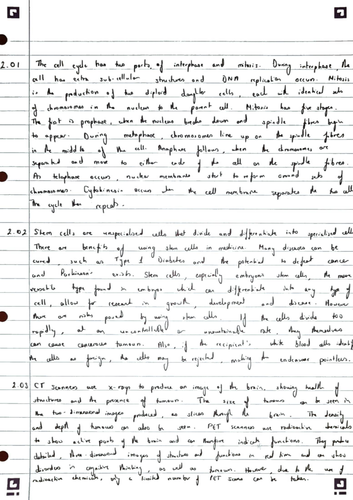 2.01 The cell cycle has two parts, of interphase and mitosis. During interphase, the
cell has extra sub-cellular structures and DNA replication occurs. Mitosis
is the production of two diploid daughter cells, each with identical sets
of chromosomes in the nucleus to the parent cell. Mitosis has five stages.
The first is prophase, when the nucleus breaks down and spindle fibres begin
to appear. During metaphase, chromosomes line up on the spindle fibres
in the middle of the cell. Anaphase follows, when the chromosomes are
separated and move to either ends of the cell on the spindle fibres.
As telophase occurs, nuclear membranes start to reform around sets of
chromosomes. Cytokinesis occurs when the cell membrane separates the two cells
The cycle then repeats.
2.02 Stem cells are unspecialised cells that divide and differentiate into specialised cells
There are benefits of using stem cells in medicine. Many diseases can be
cured, such as Type 1 Diabetes and the potential to defeat cancer
and Parkinson's exists. Stem cells, especially embryonic stem cells, the more
versatile type found in embryos which can differentiate into any type of
cell, allow for research in growth, development and disease. However
there are risks posed by using stem cells. If the cells divide too
rapidly, at an uncontrollable or unsustainable rate, they themselves
can cause cancerous tumours. Also, if the recipient's white blood cells identify
the cells as foreign, the cells may be rejected, making the endeavour pointless.
2.03 CT scanners use x-rays to produce an image of the brain, showing health of
structures and the presence of tumours. The size of tumours can be seen in
the two-dimensional images produced, as slices through the brain. The density
and depth of tumours can also be seen. PET scanners use radioactive chemicals
to show active parts of the brain and can therefore indicate functions. They produce
detailed, three-dimensional images of structure and functions in real time and can show
disorders in cognitive thinking, as well as tumours. However, due to the use of
radioactive chemicals, only a limited number of PET scans can be taken.